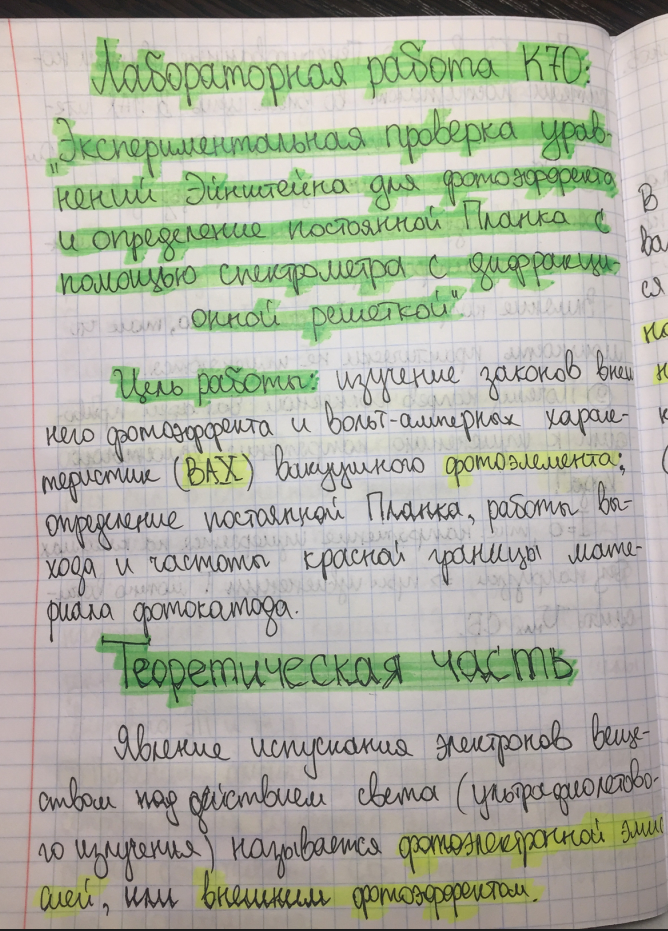 Лабораторная работа К70:
"Экспериментальная проверка урав-
нений Эйнштейна для фотоэффекта
и определение постоянной Планка с
помощью спектрометра с дифракци-
онной решеткой"
Цель работы: изучение законов внеш
него фотоэффекта и вольт-амперных харак-
теристик (ВАХ) вакуумного фотоэлемента;
определение постоянной Планка, работы вы-
хода и частоты красной границы мате-
риала фотокатода.
Теоретическая часть
Явление испускания электронов веще-
ством под действием света (ультрафиолетово-
го излучения) называется фотоэлектронной эмис
сией, или внешним фотоэффектом.
В
ва
ся
но
н
к
(